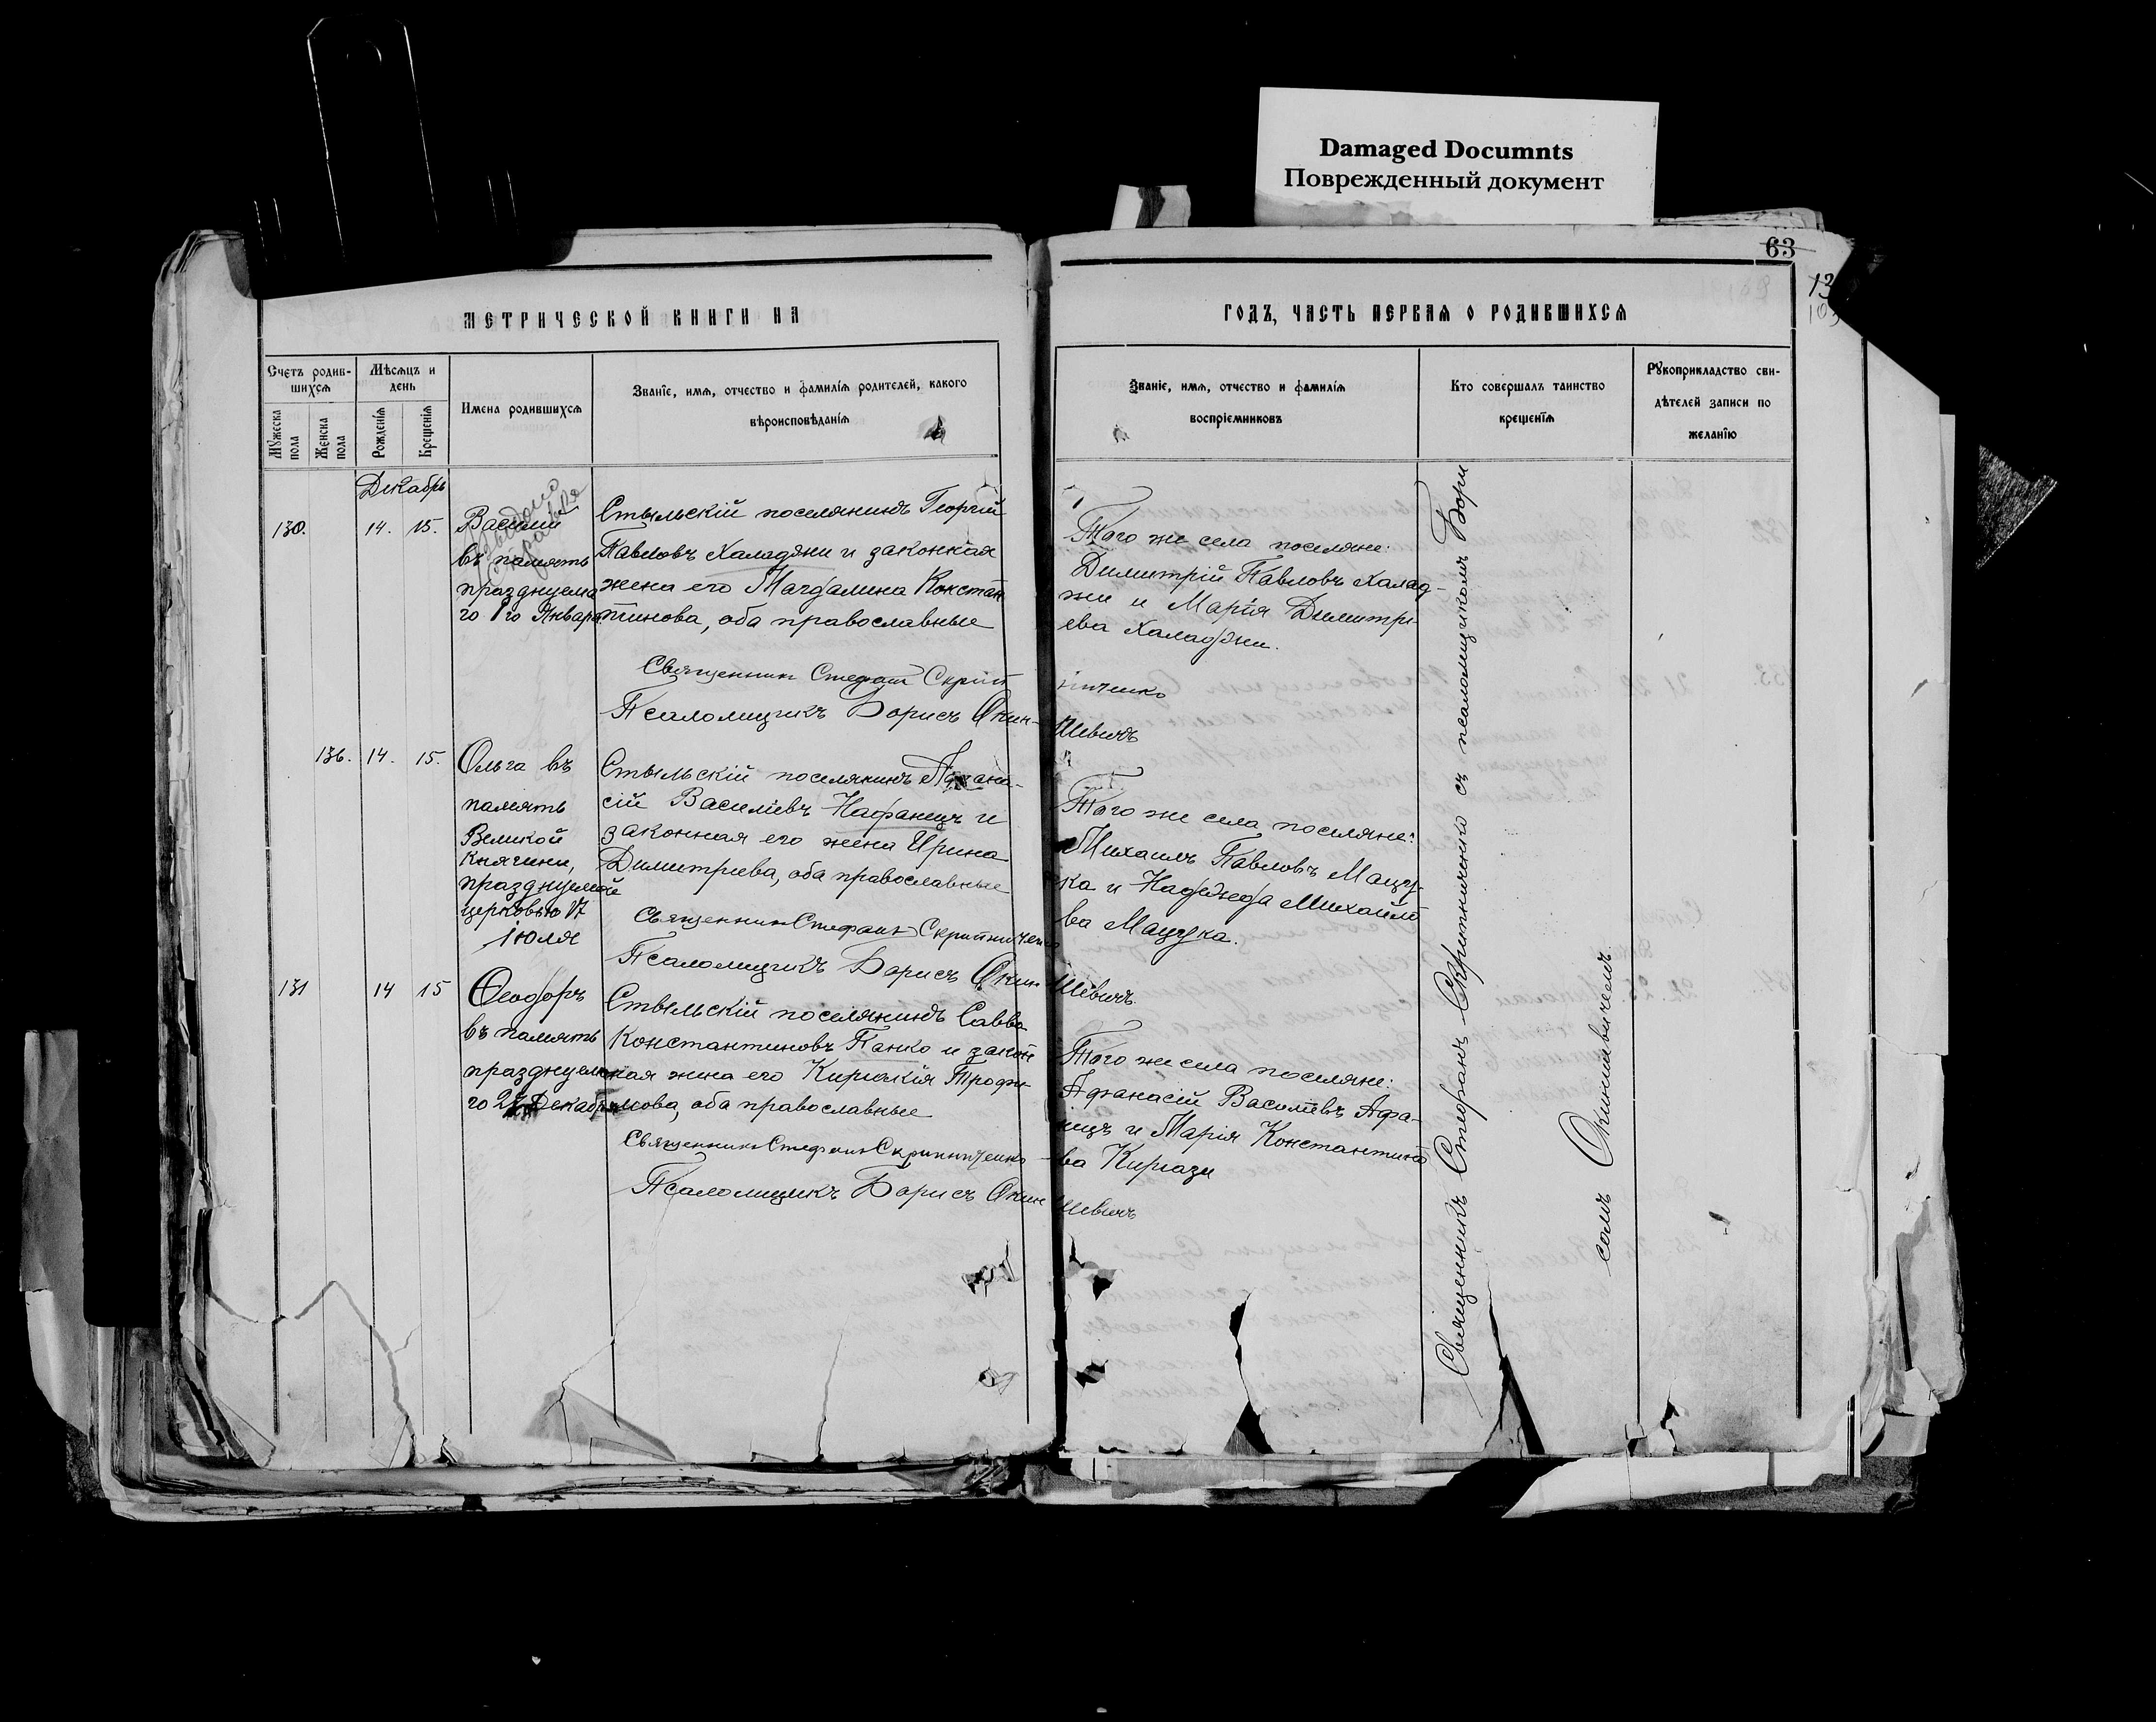 Damaged Documnts
Поврежденный документ
63
МЕТРИЧЕСКОЙ КНИГИ НА
ГОДЪ, ЧАСТЬ ПЕРВАЯ О РОДИВШИХСЯ
Счетъ родив-
шихся
Мѣсяцъ и
день
Мужеска
пола
Женска
пола
Рожденія
Крещенія
Имена родившихся
Званіе, имя, отчество и фамилія родителей, какого
вѣроисповѣданія
Званіе, имя, отчество и фамилія
воспріемниковъ
Кто совершалъ таинство
крещенія
Рукоприкладство сви-
дѣтелей записи по
желанію
Декабрь
130. 14. 15.
Василій
въ память
празднуема
го 1го Января
Стыльскій поселянинъ Георгій
Павловъ Халаджи и законная
жена его Магдалина Констан
тинова, оба православные
Священникъ Стефанъ Скрип
ниченко
Псаломщикъ Борисъ Окин-
шевичъ
Того же села поселяне:
Димитрій Павловъ Халад-
жи и Марія Димитрі-
ева Халаджи.
136. 14. 15.
Ольга въ
память
Великой
Княгини,
празднуемой
церковью 17
Іюля
Стыльскій поселянинъ Афана-
сій Васильевъ Нафанецъ и
законная его жена Ирина
Димитріева, оба православные
Священникъ Стефанъ Скрипниченко
Псаломщикъ Борисъ Окин
шевичъ.
Того же села поселяне:
Михаилъ Павловъ Мацу-
ка и Надежда Михайло
ва Мацука.
131 14 15
Ѳеодоръ
въ память
празднуема
го 27 Декабря
Стыльскій поселянинъ Савва
Константиновъ Панко и закон
ная жена его Киріакія Трофи-
мова, оба православные
Священникъ Стефанъ Скрипниченко
Псаломщикъ Борисъ Окин
шевичъ
Того же села поселяне:
Афанасій Васильевъ Афа-
нецъ и Марія Константино
ва Киргази
Священникъ Стефанъ Скрипниченко съ псаломщикомъ Бори
сомъ Окиншевичемъ